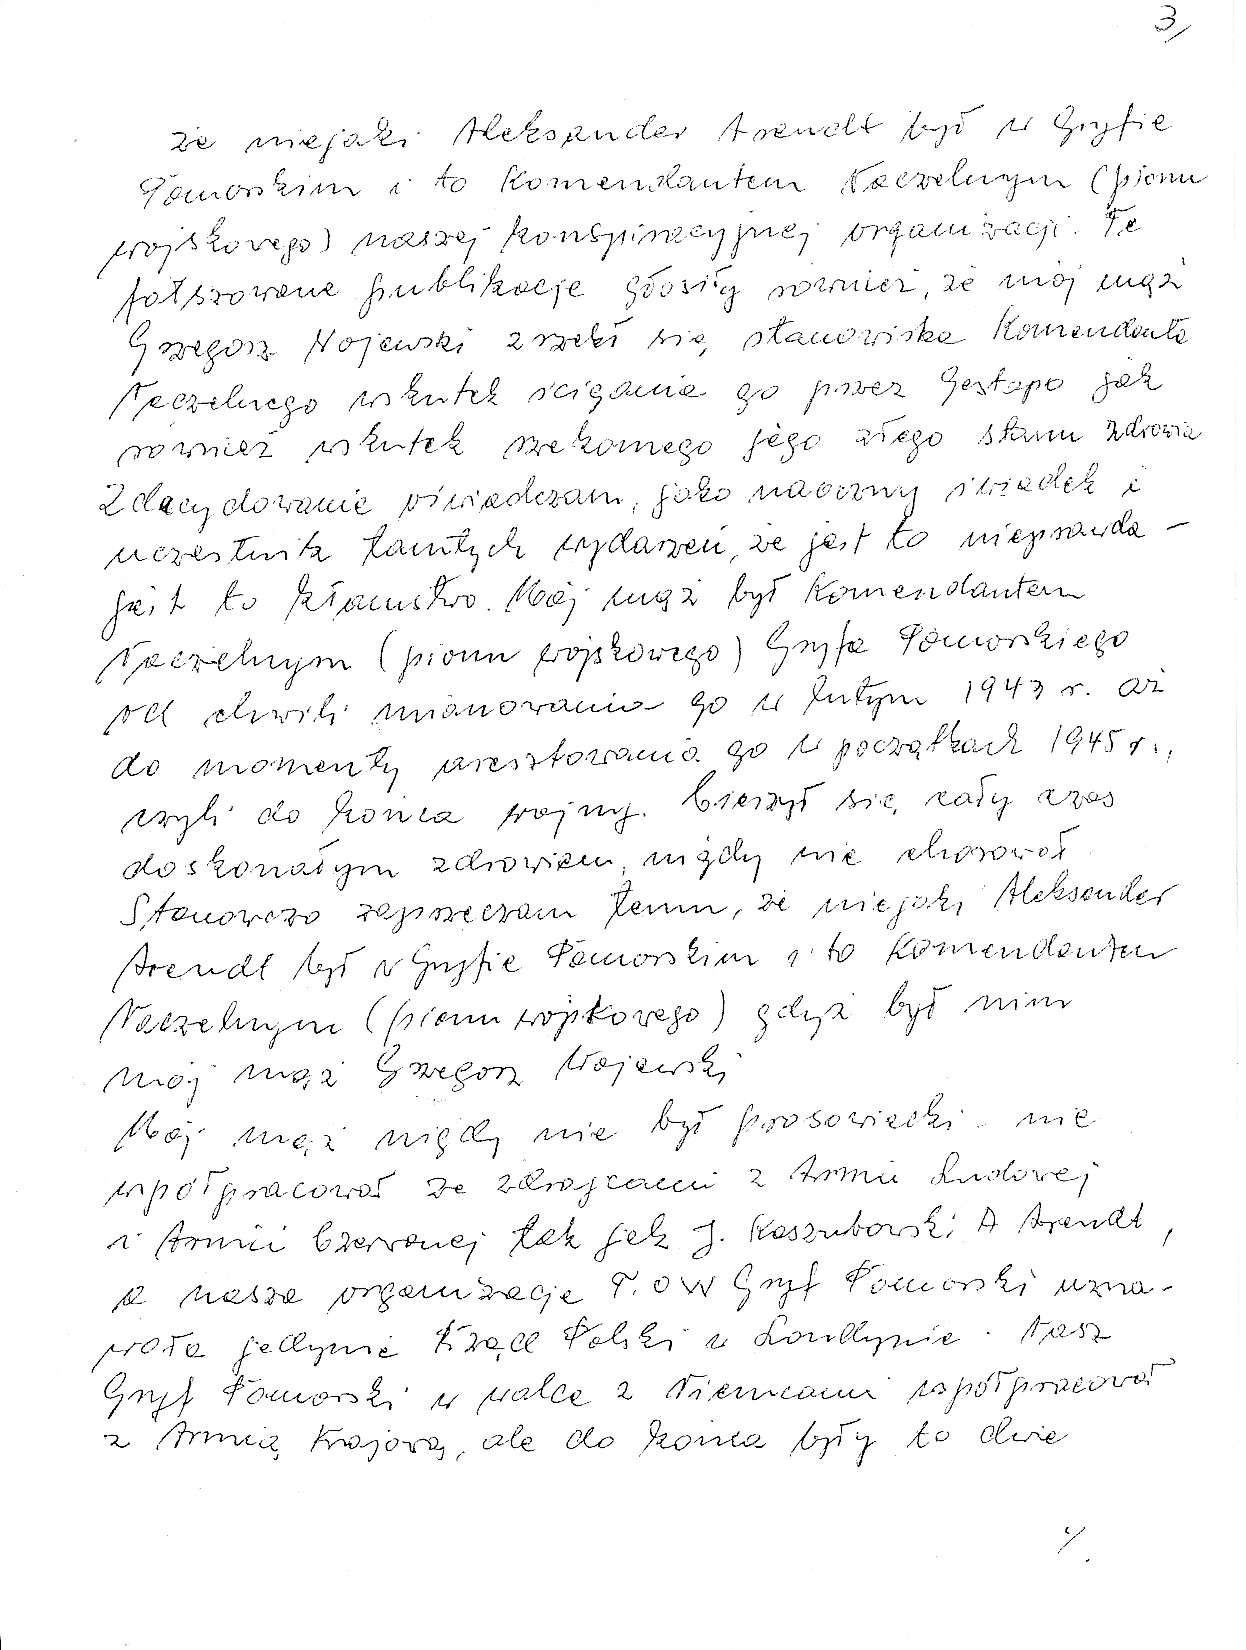 3/
że niejaki Aleksander Arendt był w Gryfie
Pomorskim i to Komendantem Naczelnym (pionu
wojskowego) naszej konspiracyjnej organizacji. Te
fałszowane publikacje głosiły również, że mój mąż
Grzegorz Wojewski zrzekł się, stanowiska Komendanta
Naczelnego wskutek ścigania go przez Gestapo jak
również wskutek rzekomego jego złego stanu zdrowia
Zdecydowanie oświadczam, jako naoczny świadek i
uczestnik tamtych wydarzeń, że jest to nieprawda –
jest to kłamstwo. Mój mąż był Komendantem
Naczelnym (pionu wojskowego) Gryfa Pomorskiego
od chwili mianowania go w lutym 1943 r. aż
do momenty aresztowania go w początkach 1945 r.,
czyli do końca wojny. Cieszył się, cały czas
doskonałym zdrowiem, nigdy nie chorował.
Stanowczo zaprzeczam temu, że niejaki Aleksander
Arendt był w Gryfie Pomorskim i to Komendantem
Naczelnym (pionu wojskowego) gdyż był nim
mój mąż Grzegorz Wojewski
Mój mąż nigdy nie był prosowiecki - nie
współpracował ze zdrajcami z Armii Ludowej
i Armii Czerwonej tak jak J. Kaszubowski A Arendt,
a nasza organizacja T.O W Gryf Pomorski uzna-
wała jedynie Rząd Polski w Londynie. Nasz
Gryf Pomorski w walce z Niemcami współpracował
z Armią Krajową, ale do końca były to dwie